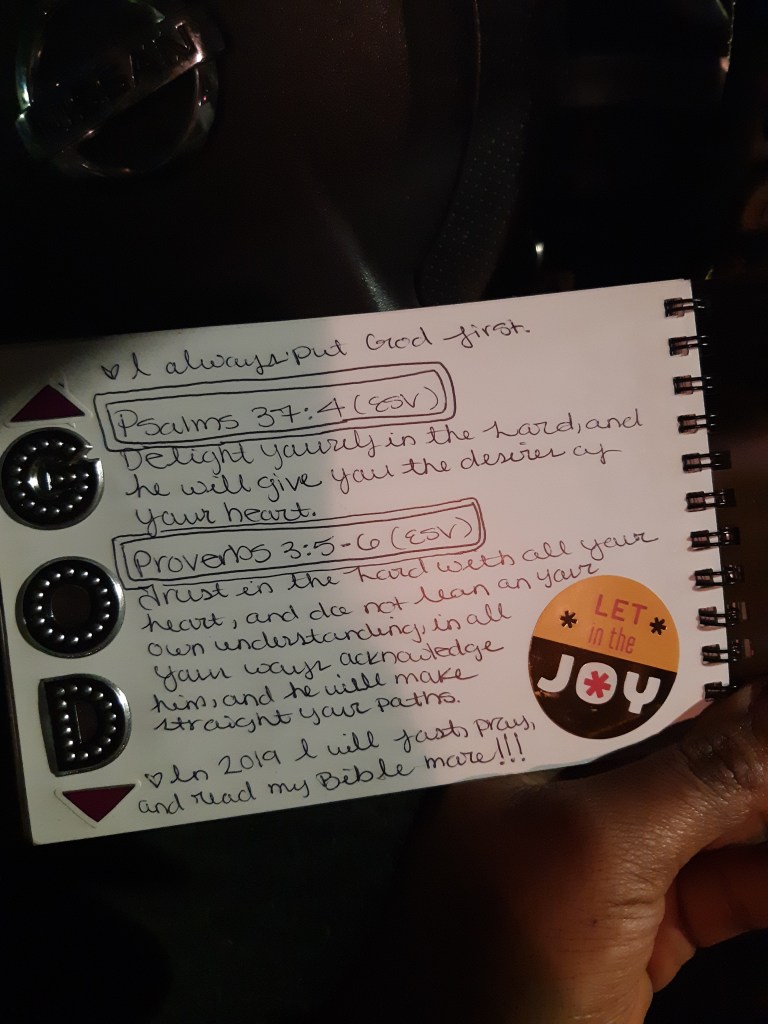 I always put God first.
Psalms 37:4 (ESV)
Delight yourself in the Lord, and
he will give you the desires of
your heart.
Proverbs 3:5-6 (ESV)
Trust in the Lord with all your
heart, and do not lean on your
own understanding, in all
your ways acknowledge
him, and he will make
straight your paths.
In 2019 I will fast, pray,
and read my Bible more!!!
GOD
LET
in the
JOY